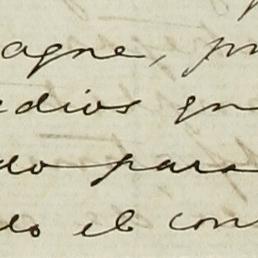 agne, pr
dios qu
do para
do el con